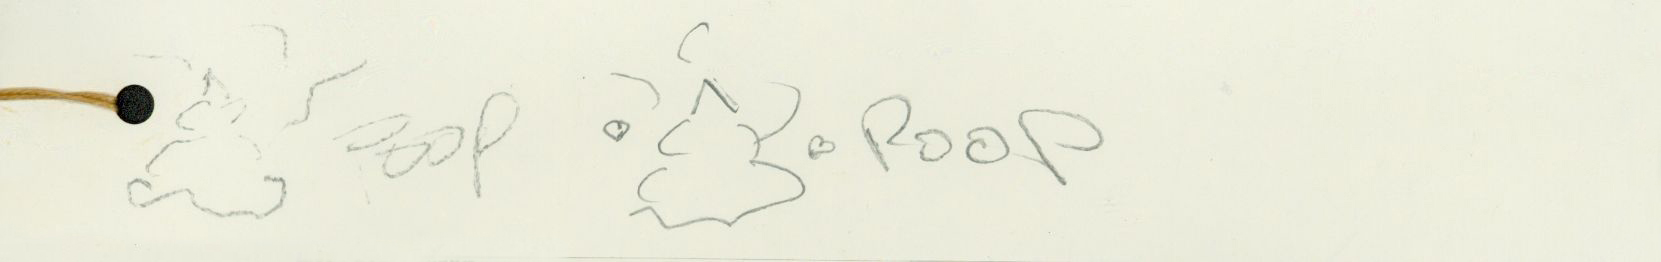 Poop Poop